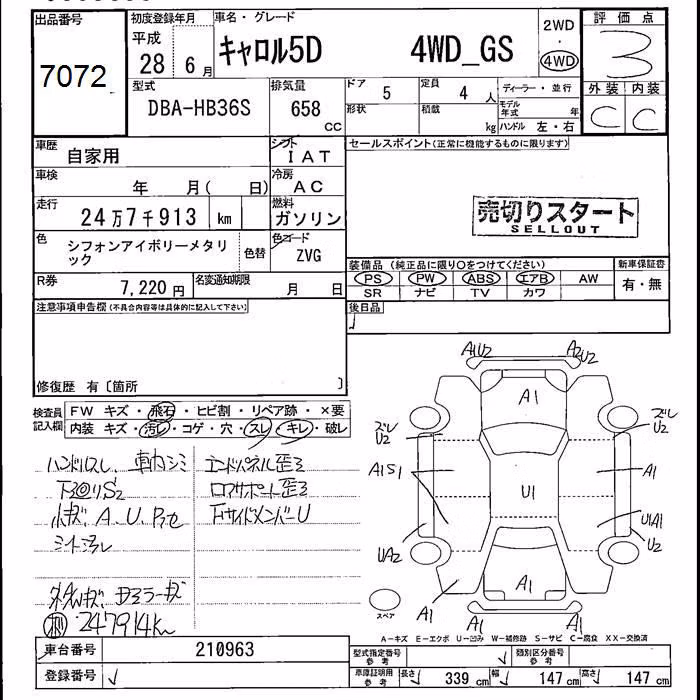 出品番号 初度登録年月 車名・グレード 2WD 評価点
7072 平成 28 6月 キャロル5D 4WD_GS 4WD 3
型式 排気量 ドア 5 定員 4人 ディーラー・並行 外装 内装
DBA-HB36S 658 CC 形状 積載 kg モデル年式 年 ハンドル 左・右 C C
車歴 自家用 シフト IAT セールスポイント(正常に機能するものに限ります)
車検 年 月( 日) 冷房 AC
走行 24万7千913 km 燃料 ガソリン 売切りスタート
SELLOUT
色 シフォンアイボリーメタリック 色替 色コード ZVG
装備品 (純正品に限り○をつけてください) 新車保証書
R券 7,220円 名変通知期限 月 日 PS PW ABS エアB AW 有・無
SR ナビ TV カワ
注意事項申告欄(不具合内容等は具体的に記入して下さい) 後日品
修復歴 有〔箇所 〕
検査員記入欄 FW キズ・飛石・ヒビ割・リペア跡・×要
内装 キズ・汚レ・コゲ・穴・スレ・キレ・破レ
ハンドルスレ、車内シミ エンドパネル歪ミ
下回りS2 ロアサポート歪ミ
小キズ、A、U、 Fサイドメンバー U
シート汚レ
ドアミラーキズ
247914km
A1U2 A2U2
A1 ズレ U2 ズレ U2
A1S1 U1 A1
UA2 U1A1 U2
A1 A1 A1
スペア
A-キズ E-エクボ U-凹み W-補修跡 S-サビ C-腐食 XX-交換済
車台番号 210963 型式指定番号 参考 類別区分番号 参考
登録番号 車庫証明用 参考 長さ 339 cm 幅 147 cm 高さ 147 cm